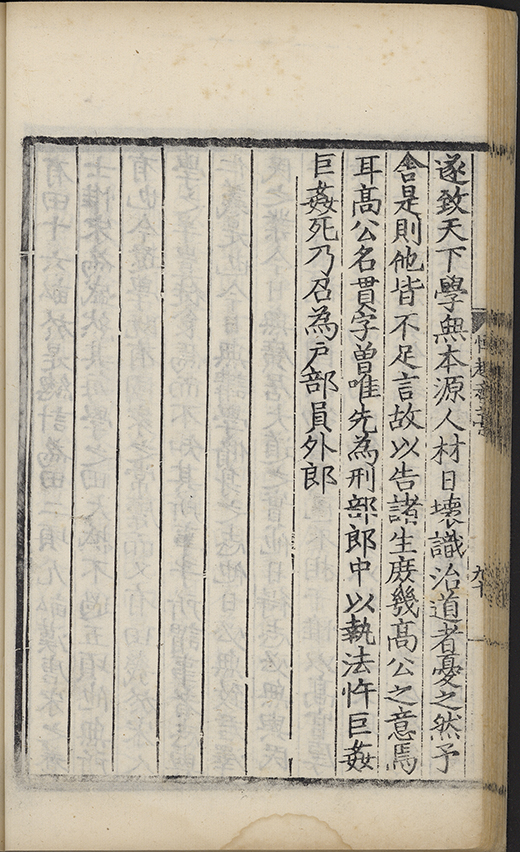 遂致天下學無本源人材日壞識治道者憂之然予
舍是則他皆不足言故以告諸生庻幾髙公之意焉
耳髙公名貫字曽唯先為刑部郎中以執法忤巨姦
巨姦死乃召為戸部員外郎